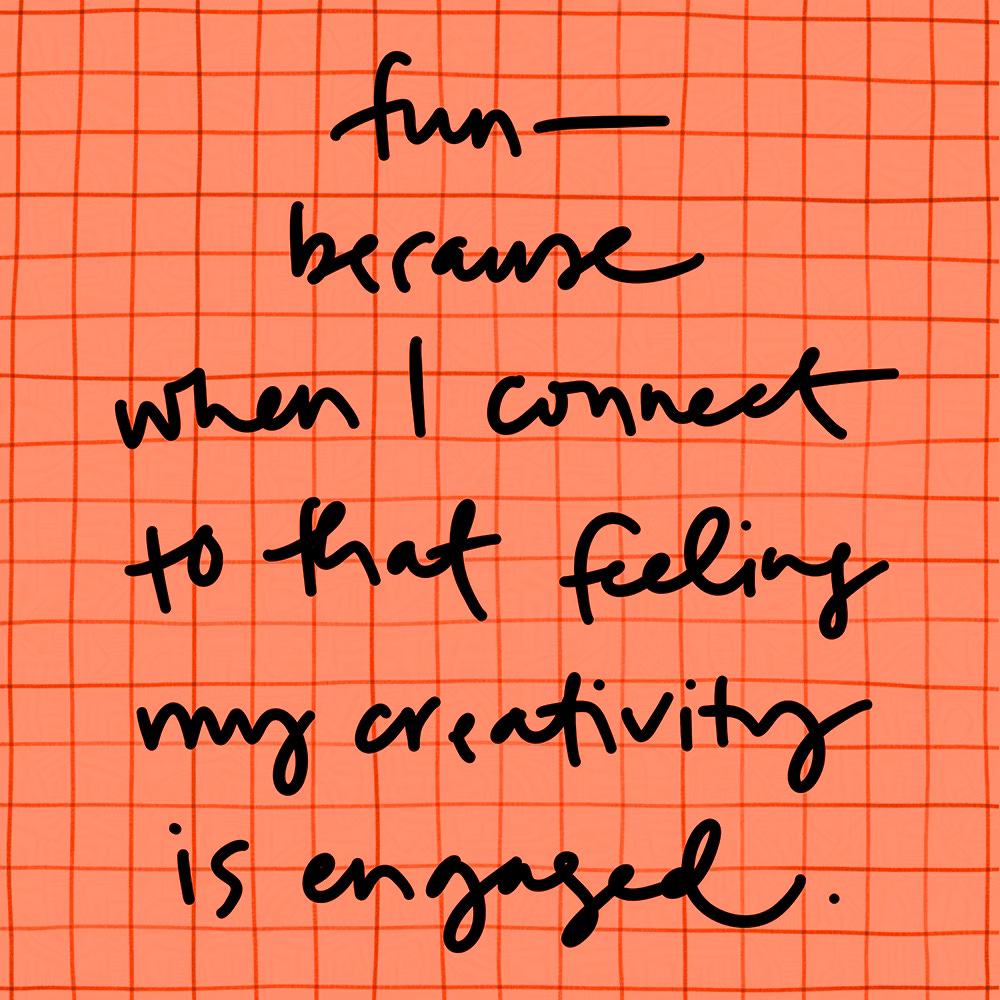 fun—
because
when I connect
to that feeling
my creativity
is engaged.